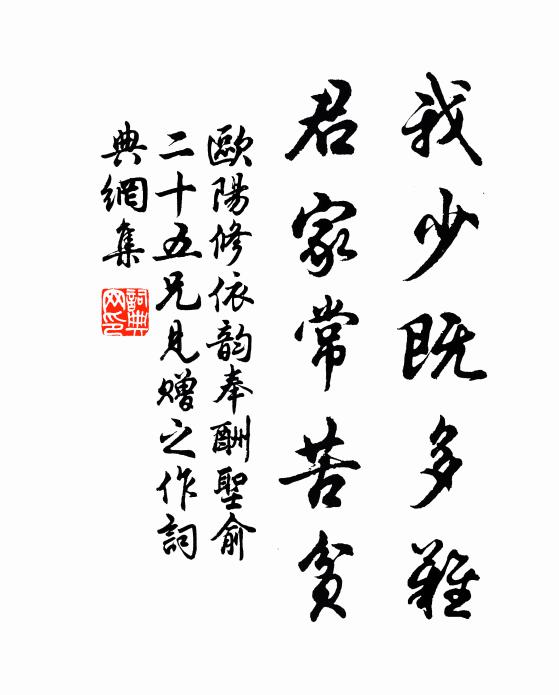 我少既多難
君家常苦貧
歐陽修依韵奉酬聖俞
二十五兄見贈之作詞
典網集
詞典網印